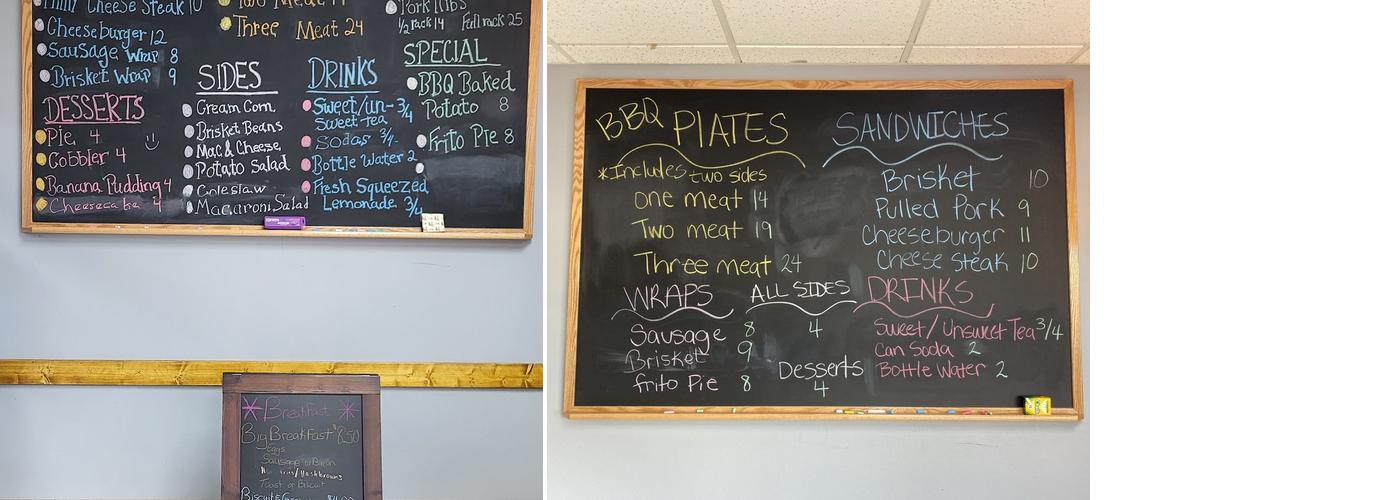 Philly Cheese Steak 10
Cheeseburger 12
Sausage Wrap 8
Brisket Wrap 9
DESSERTS
Pie 4
Cobbler 4
Banana Pudding 4
Cheesecake 4
Two Meat
Three Meat 24
SIDES
Cream Corn
Brisket Beans
Mac & Cheese
Potato Salad
Coleslaw
Macaroni Salad
DRINKS
Sweet/un- 3/4
Sweet tea
Sodas 3/4
Bottle Water 2
Fresh Squeezed
Lemonade 3/4
Pork Ribs
1/2 rack 14 Full rack 25
SPECIAL
BBQ Baked
Potato 8
Frito Pie 8
BreakFast
Big BreakFast $8.50
Eggs
Sausage or Bacon
Toast or Biscuit
BBQ PLATES
*Includes two sides
one meat 14
Two meat 19
Three meat 24
WRAPS
Sausage 8
Brisket 9
frito Pie 8
ALL SIDES
4
Desserts
4
SANDWICHES
Brisket 10
Pulled Pork 9
Cheeseburger 11
Cheese Steak 10
DRINKS
Sweet/Unsweet Tea 3/4
Can Soda 2
Bottle Water 2